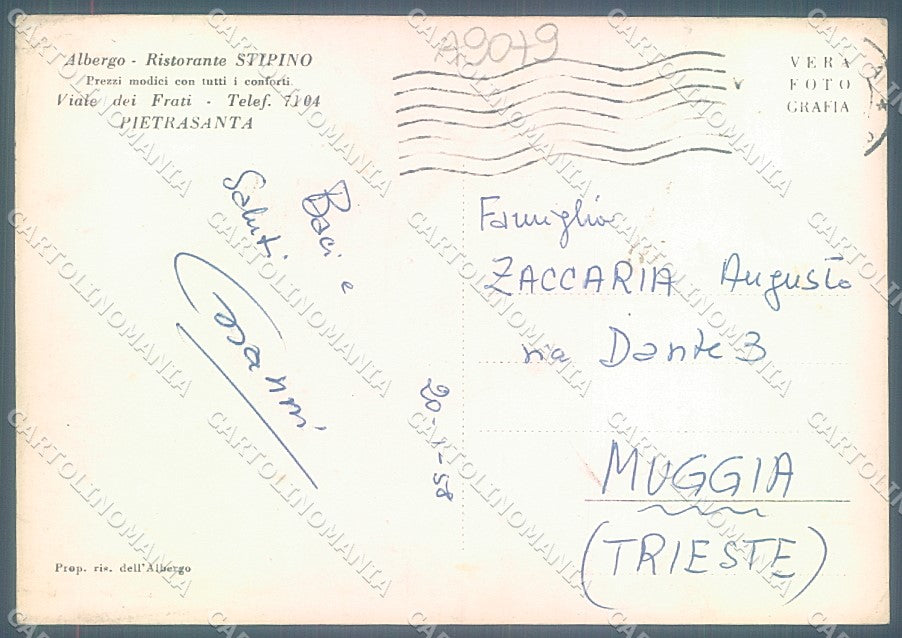 A9049
Albergo - Ristorante STIPINO
Prezzi modici con tutti i conforti
Viale dei Frati - Telef. 7104
PIETRASANTA
VERA
FOTO
GRAFIA
Baci e
Saluti
Famiglia
ZACCARIA Augusto
via Dante 3
MUGGIA
(TRIESTE)
Prop. ris. dell'Albergo
CARTOLINOMANIA